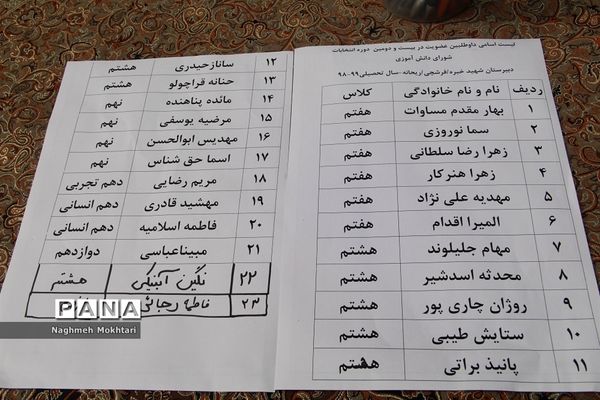 لیست اسامی داوطلبین عضویت در بیست و دومین دوره انتخابات
شورای دانش آموزی
دبیرستان شهید خبره/فرشچی/ریحانه-سال تحصیلی ۹۹-۹۸
ردیف نام و نام خانوادگی کلاس
۱ بهار مقدم مساوات هفتم
۲ سما نوروزی هفتم
۳ زهرا رضا سلطانی هفتم
۴ زهرا هنرکار هفتم
۵ مهدیه علی نژاد هفتم
۶ المیرا اقدام هفتم
۷ مهام جلیلوند هشتم
۸ محدثه اسدشیر هشتم
۹ روژان چاری پور هشتم
۱۰ ستایش طیبی هشتم
۱۱ پانیذ براتی هشتم
۱۲ سانازحیدری هشتم
۱۳ حنانه قراچولو هشتم
۱۴ مائده پناهنده نهم
۱۵ مرضیه یوسفی نهم
۱۶ مهدیس ابوالحسن نهم
۱۷ اسما حق شناس نهم
۱۸ مریم رضایی دهم تجربی
۱۹ مهشید قادری دهم انسانی
۲۰ فاطمه اسلامیه دهم انسانی
۲۱ مبیناعباسی دوازدهم
۲۲ نگین آبنیکی هشتم
۲۳ فاطمه رجبائی
PANA
Naghmeh Mokhtari